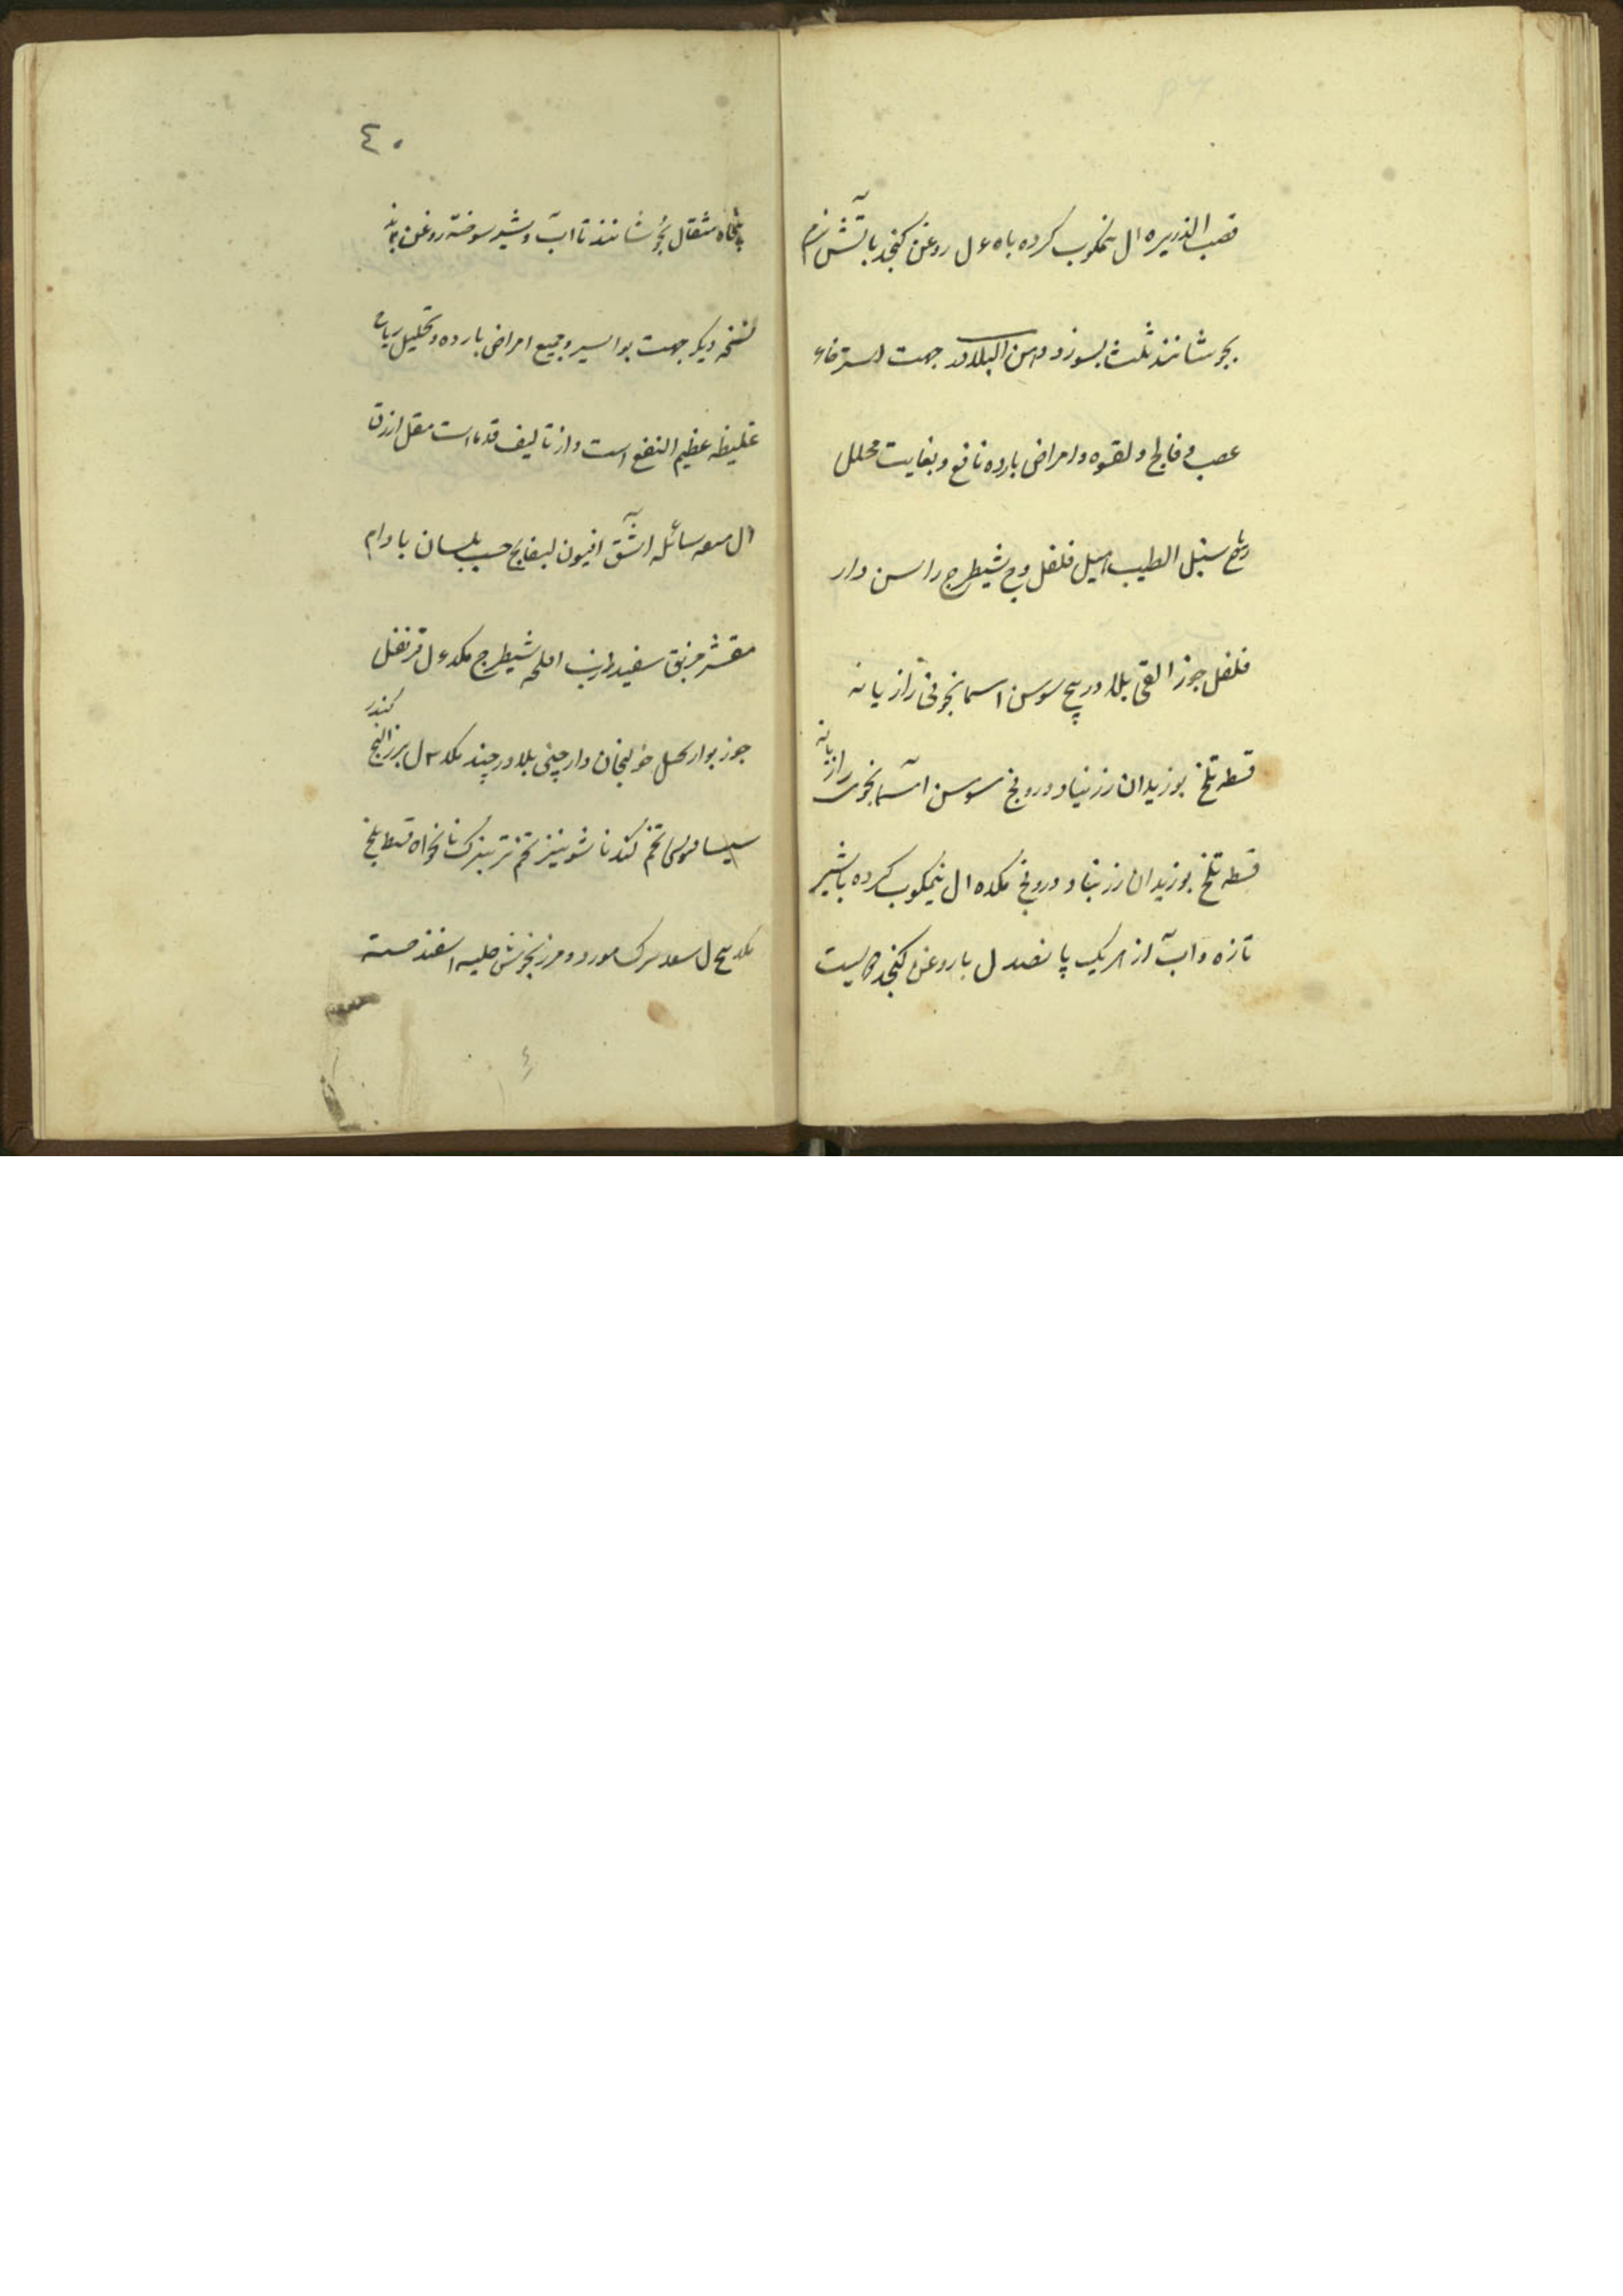 قصب الذریره ال نیمکوب کرده باه ۶ ل روغن کنجد بآتش نرم
بجوشانند ثلث بسوزد دهن البلادر جهت استرخاء
عصب و فالج و لقوه و امراض بارده نافع و بغایت محلل
ریاح سنبل الطیب فلفل وج شیطرج راسن دار
فلفل جوز القی بلادر بیخ سوسن اسمانجونی رازیانه
قسط تلخ بوزیدان زرنباد درونج سوسن آسمانجونی رازیانه
قسط تلخ بوزیدان زرنباد درونج مکده ال نیمکوب کرده باشیر
تازه و آب از هریک پانصد ل با روغن کنجد دویست
٤٠
پنجاه مثقال بجوشانند تا آب و شیر سوخته روغن بماند
نسخه دیکر جهت بواسیر و جمیع امراض بارده و تحلیل ریاح
غلیظه عظیم النفع است و از تالیف قدما است مقل ازرق
ال میعه سائله اشق افیون بسفایج حب بلسان بادام
مقشر خربق سفید شیطرج مکد ۶ ل قرنفل
کندر
جوز بوا خولنجان دارچینی بلادر مکد ۳ ل بزر البنج
تخم کندنا شونیز تخم ترب نانخواه قسط تلخ
مکد پنج ل سعد مورد و مرزنجوش حلبه اسفند